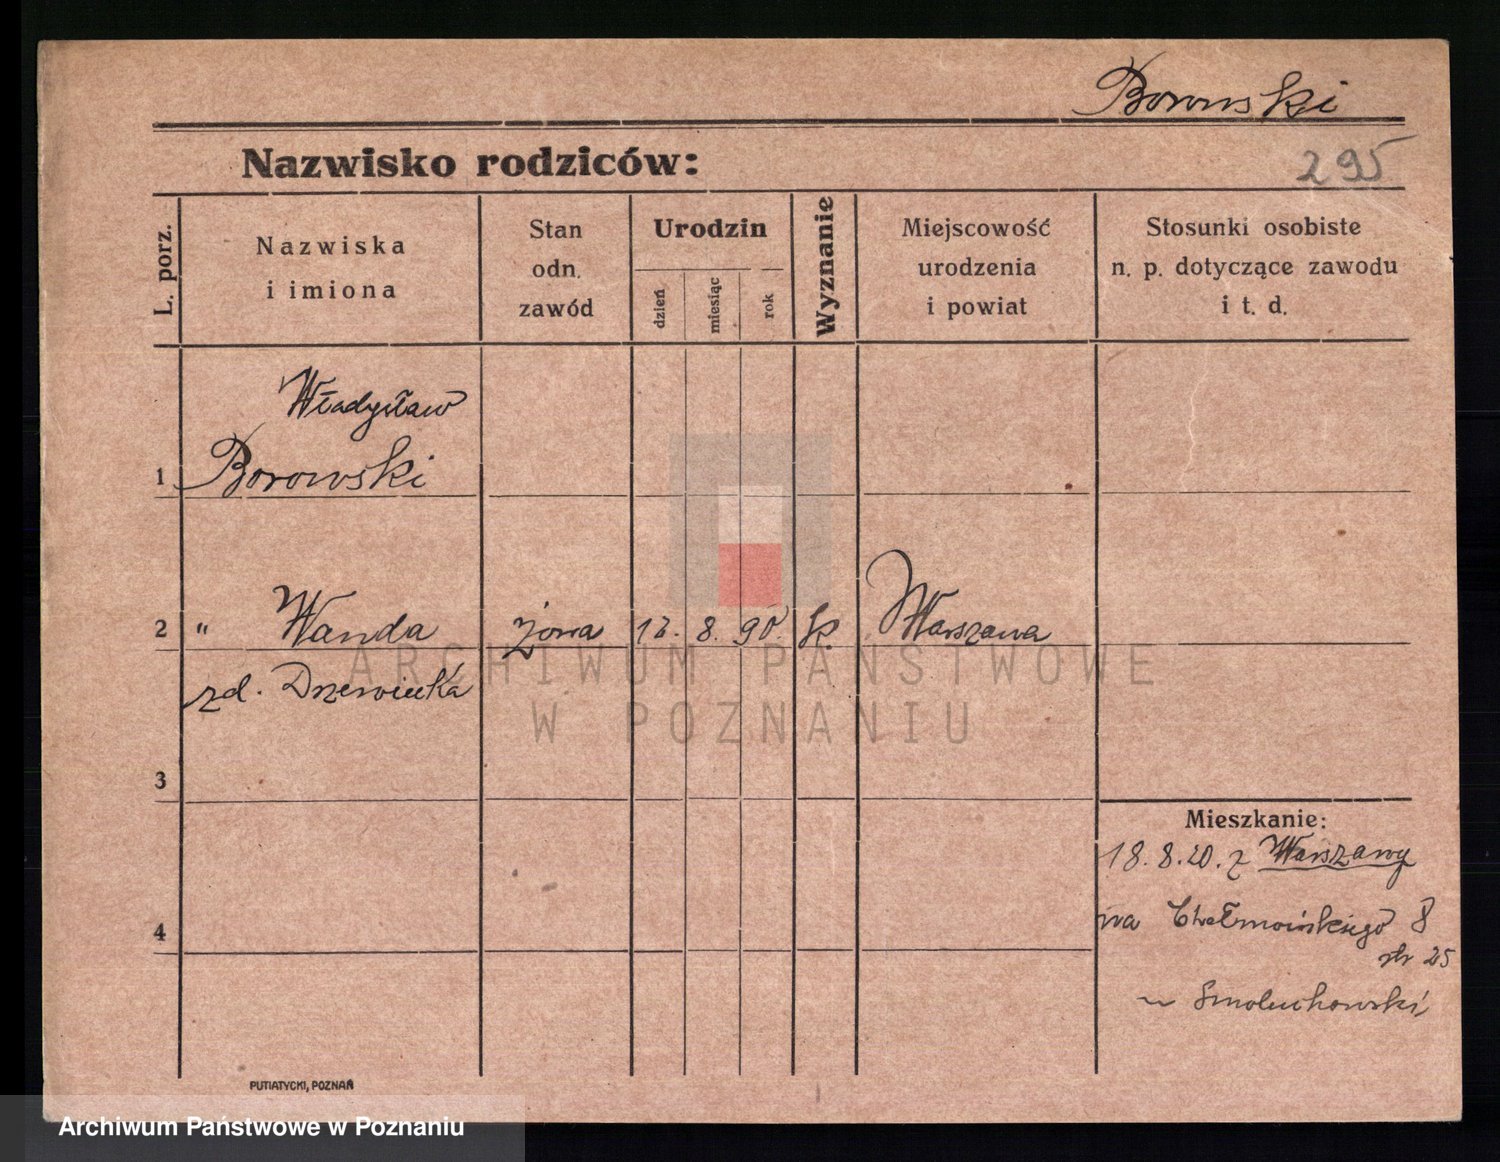 Borowski
Nazwisko rodziców:
295
L. porz.
Nazwiska
i imiona
Stan
odn.
zawód
Urodzin
dzień
miesiąc
rok
Wyznanie
Miejscowość
urodzenia
i powiat
Stosunki osobiste
n. p. dotyczące zawodu
i t. d.
Władysław
1 Borowski
2 " Wanda żona 12. 8. 90. Warszawa
zd. Drzewiecka
ARCHIWUM PAŃSTWOWE
W POZNANIU
3
Mieszkanie:
18.8.20. z Warszawy
na Chełmońskiego 8
25
4
u Smoluchowski
PUTIATYCKI, POZNAŃ
Archiwum Państwowe w Poznaniu